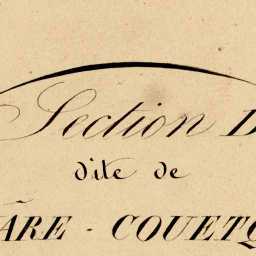 Section D
dite de
ÃRE - COUETQ